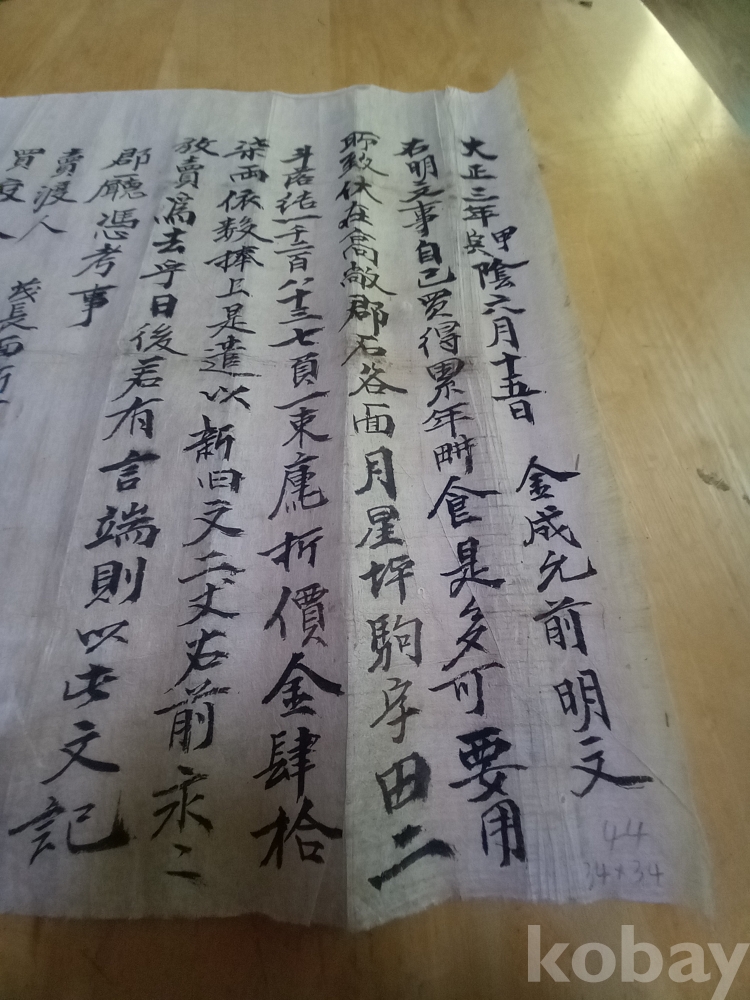 大正三年甲寅陰六月十五日 金成允前明文
右明文事自己買得累年畊食是多可要用
所致伏在高敞郡石谷面月星坪駒字田二
斗落結一千二百八十三七頁一束㢀折價金肆拾
柒兩依數捧上是遣以新旧文二丈右前永永
放賣爲去乎日後若有言端則以此文記
郡廳憑考事
賣渡人
買渡人 長面
44
34×34
kobay